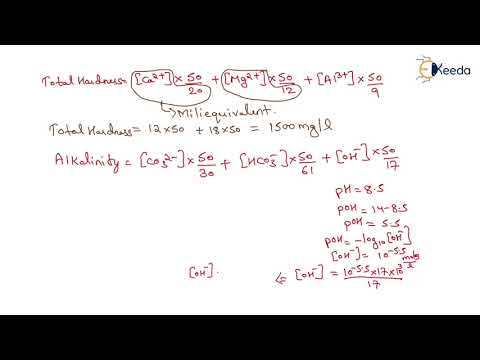 Keeda
Total Hardness = [Ca²⁺] × 50/20 + [Mg²⁺] × 50/12 + [Al³⁺] × 50/9
→ Miliequivalent.
Total Hardness = 12×50 + 18×50 = 1500 mg/l
Alkalinity = [CO₃²⁻] × 50/30 + [HCO₃⁻] × 50/61 + [OH⁻] × 50/17
pH = 8.5
pOH = 14-8.5
pOH = -log₁₀[OH⁻]
[OH⁻] = 10⁻⁵·⁵ moles/l
[OH⁻]. ⇐ [OH⁻] = 10⁻⁵·⁵×17×10³/17